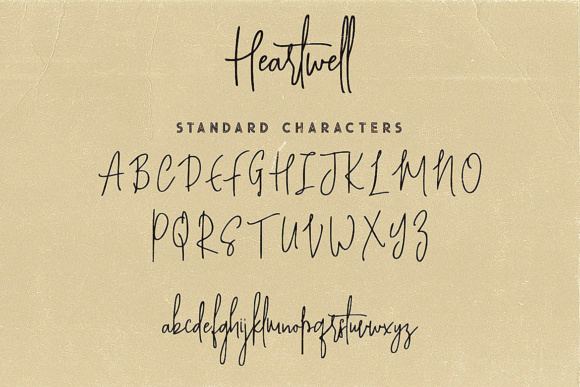 Heartwell
STANDARD CHARACTERS
ABCDEFGHIJKLMNO
PQRSTUVWXYZ
abcdefghijklmnopqrstuvwxyz